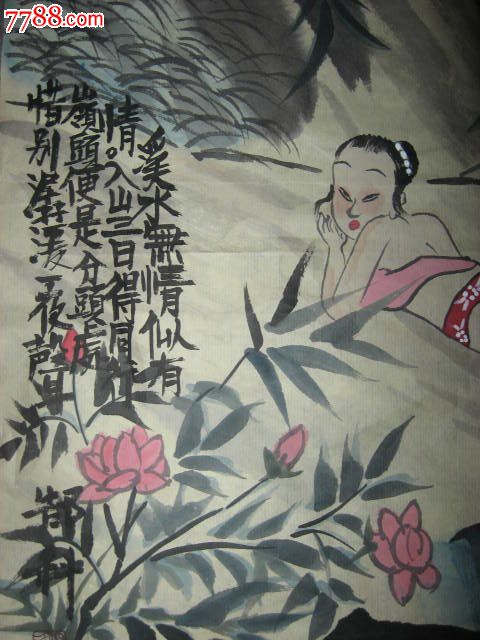 7788.com
中国收藏热线
溪水無情似有
情。入山三日得同行
嶺頭便是分頭處
惜别潺湲一夜聲